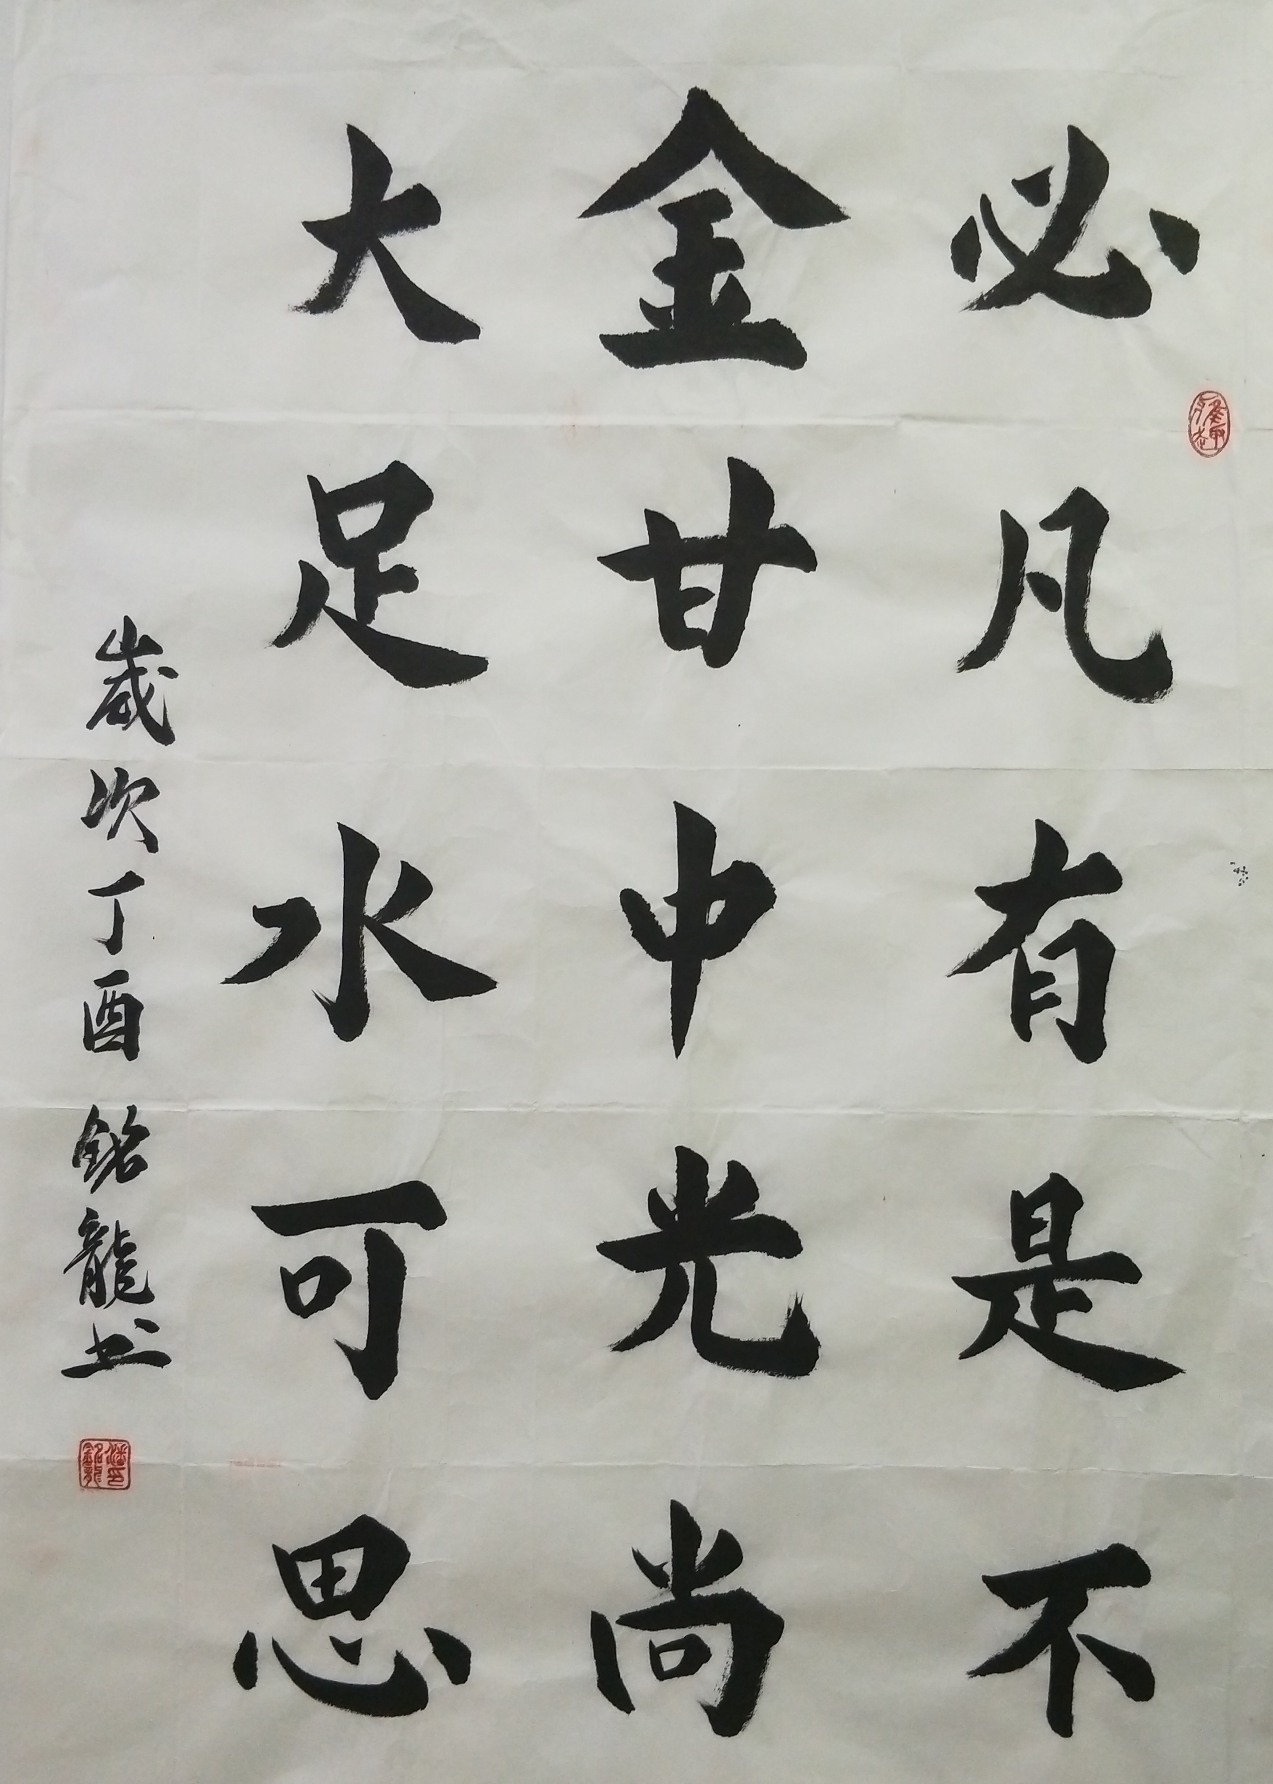 必凡有是不
金甘中光尚
大足水可思
歲次丁酉 銘龍书